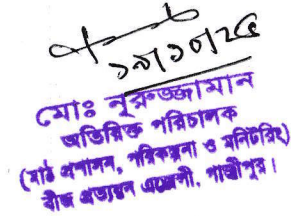 ১৯/১০/২৫
মোঃ নূরুজ্জামান
অতিরিক্ত পরিচালক
(মাঠ প্রশাসন, পরিকল্পনা ও মনিটরিং)
বীজ প্রত্যয়ন এজেন্সী, গাজীপুর।